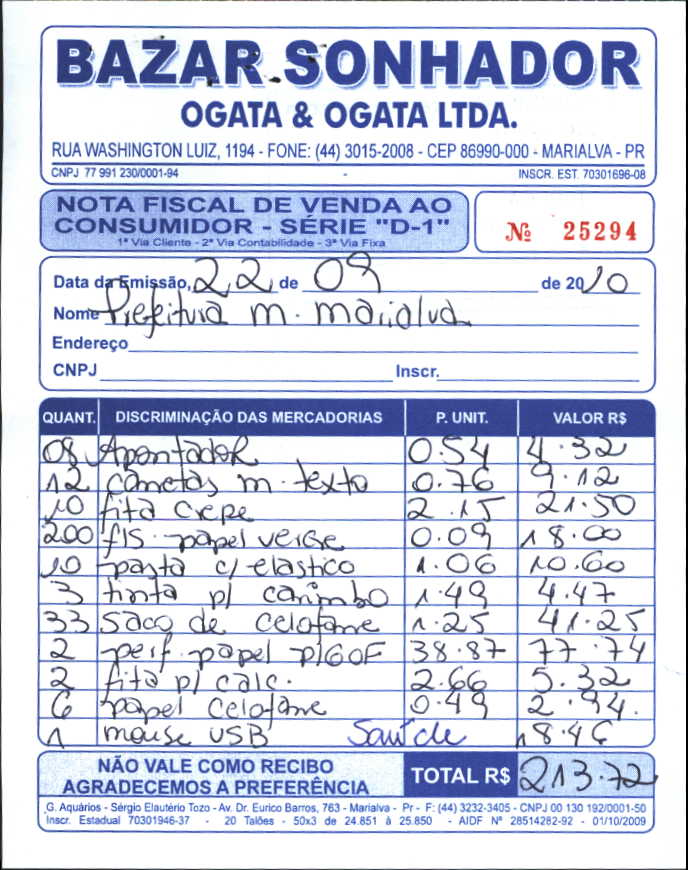 BAZAR SONHADOR
OGATA & OGATA LTDA.
RUA WASHINGTON LUIZ, 1194 - FONE: (44) 3015-2008 - CEP 86990-000 - MARIALVA - PR
CNPJ 77 991 230/0001-94 - INSCR. EST. 70301696-08
NOTA FISCAL DE VENDA AO
CONSUMIDOR - SÉRIE "D-1"
1ª Via Cliente - 2ª Via Contabilidade - 3ª Via Fixa
Nº 25294
Data da Emissão, 22 de 09 de 2010
Nome Prefeitura m. marialva
Endereço
CNPJ Inscr.
QUANT. DISCRIMINAÇÃO DAS MERCADORIAS P. UNIT. VALOR R$
08 Apontador 0.54 4.32
12 canetas m. texto 0.76 9.12
10 fita crepe 2.15 21.50
200 fls papel verge 0.09 18.00
10 pasta c/ elastico 1.06 10.60
3 tinta p/ carimbo 1.49 4.47
33 saco de celofane 1.25 41.25
2 perf. papel p/60F 38.87 77.74
2 fita p/ calc. 2.66 5.32
6 papel celofane 0.49 2.94.
1 mouse USB Saúde 18.46
NÃO VALE COMO RECIBO
AGRADECEMOS A PREFERÊNCIA
TOTAL R$ 213.72
G. Aquários - Sérgio Elautério Tozo - Av. Dr. Eurico Barros, 763 - Marialva - Pr - F: (44) 3232-3405 - CNPJ 00 130 192/0001-50
Inscr. Estadual 70301946-37 - 20 Talões - 50x3 de 24.851 à 25.850 - AIDF Nº 28514282-92 - 01/10/2009